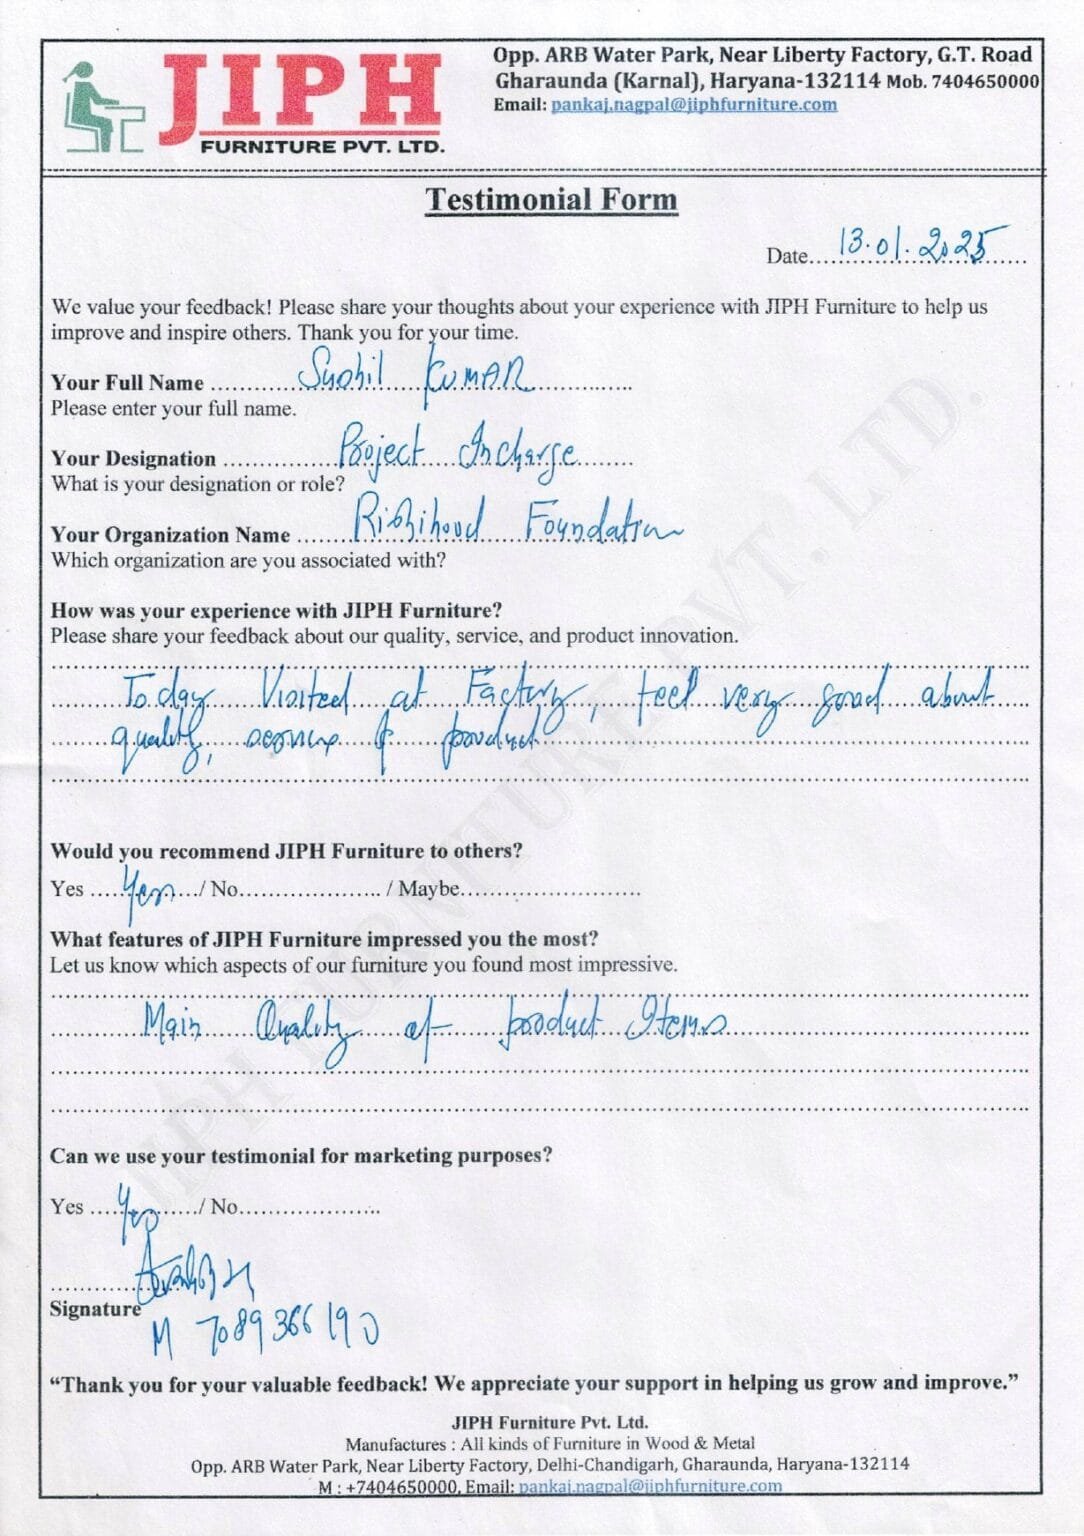 JIPH
FURNITURE PVT. LTD.
Opp. ARB Water Park, Near Liberty Factory, G.T. Road
Gharaunda (Karnal), Haryana-132114 Mob. 7404650000
Email: pankaj.nagpal@jiphfurniture.com
Testimonial Form
Date....13.01.2025......
We value your feedback! Please share your thoughts about your experience with JIPH Furniture to help us
improve and inspire others. Thank you for your time.
Your Full Name ............Sushil KUMAR...............
Please enter your full name.
Your Designation ................Project Incharge........
What is your designation or role?
Your Organization Name ........Rishihood Foundation
Which organization are you associated with?
How was your experience with JIPH Furniture?
Please share your feedback about our quality, service, and product innovation.
Today Visited at Factory, feel very good about
quality, of product
Would you recommend JIPH Furniture to others?
Yes ....Yes..../ No.................... / Maybe..........................
What features of JIPH Furniture impressed you the most?
Let us know which aspects of our furniture you found most impressive.
Main Quality of product Items
Can we use your testimonial for marketing purposes?
Yes ....Yes....../ No....................
Signature
M 7089366190
“Thank you for your valuable feedback! We appreciate your support in helping us grow and improve.”
JIPH Furniture Pvt. Ltd.
Manufactures : All kinds of Furniture in Wood & Metal
Opp. ARB Water Park, Near Liberty Factory, Delhi-Chandigarh, Gharaunda, Haryana-132114
M : +7404650000, Email: pankaj.nagpal@jiphfurniture.com
JIPH FURNITURE PVT. LTD.